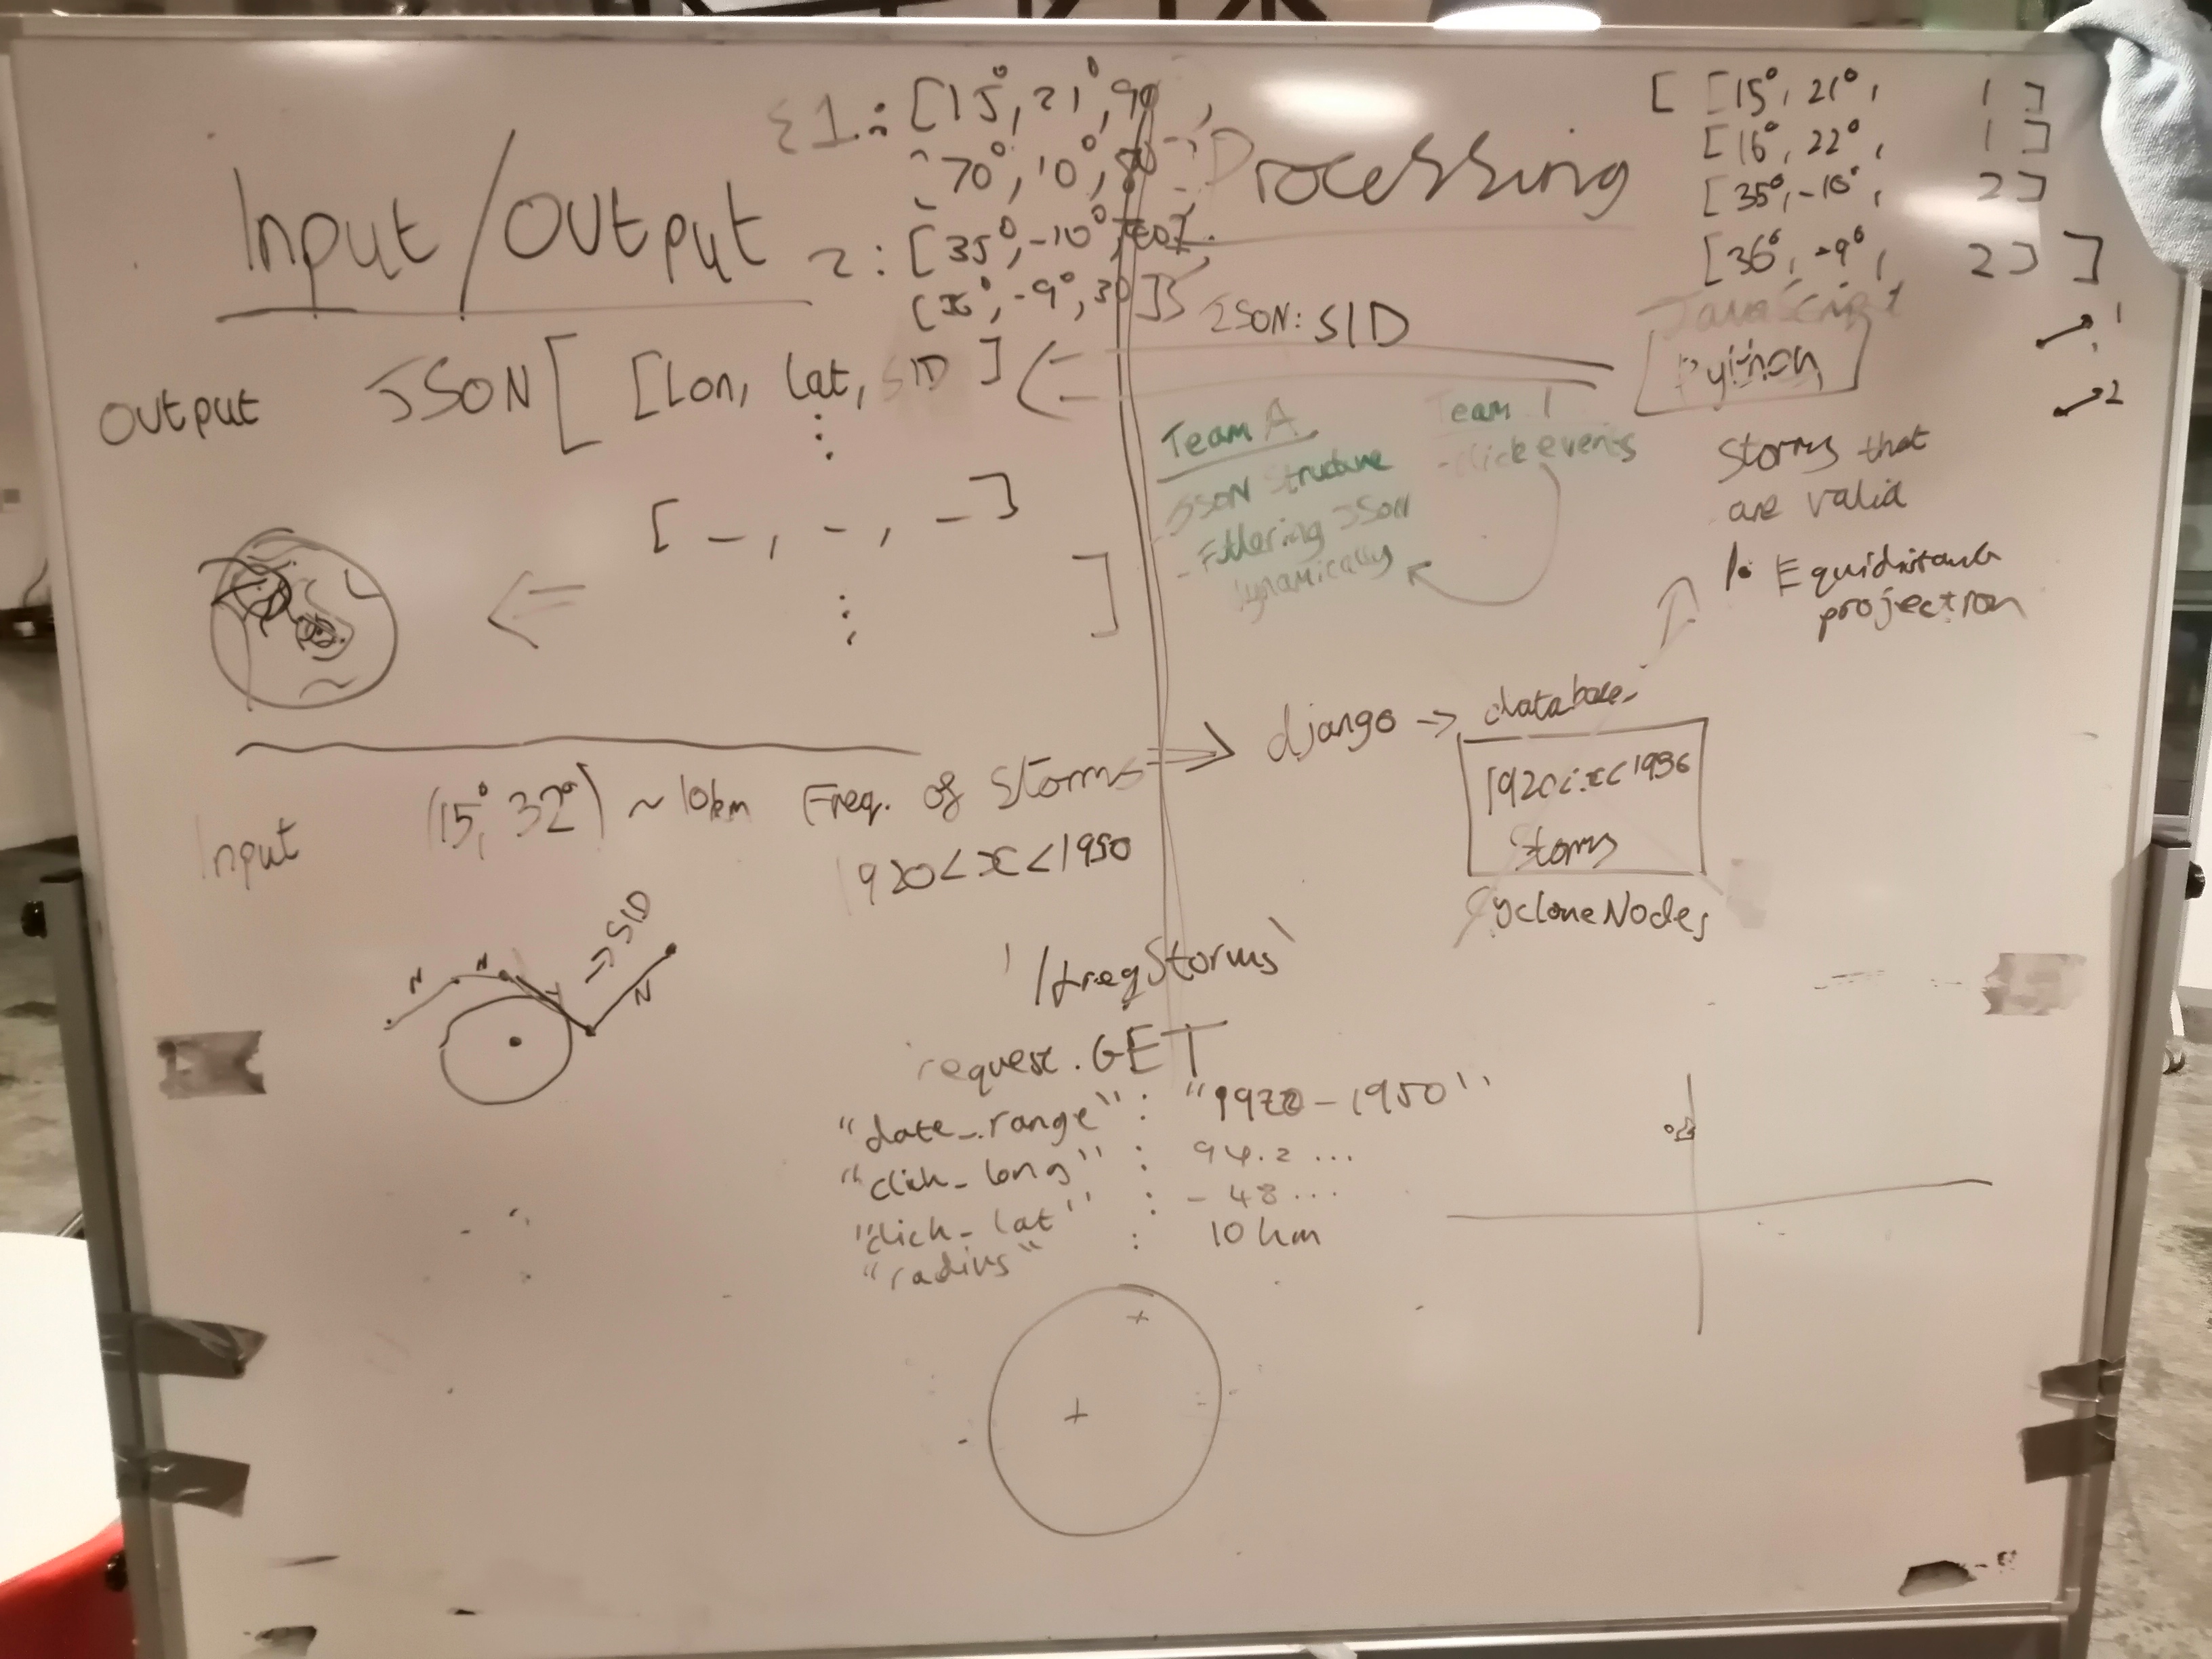 Input/Output
1: [15°, 21°, 90
70°, 10°,
2: [35°, -10°,
-9°, 30]]}
Output JSON [ [Lon, lat, SID ]
[ _, -, _ ]
]
Input (15°, 32°) ~10km Freq. of Storms
1920 < x < 1950
N N N
→ SID
'/freqStorms'
request.GET
"date_range" : - 1950"
"click_long" : 94.2 ...
"click_lat" : - 48...
"radius" : 10 km
Processing
JSON: SID
Team A
JSON Structure
- Filtering JSON
dynamically
Team 1
- click events
[ [15°, 21°, 1 ]
[16°, 22°, 1 ]
[35°, -10°, 2 ]
[36°, -9°, 2 ] ]
JavaScript
Python
1
2
Storms that
are valid
1. Equidistant
projection
django → database
Storms
CycloneNodes